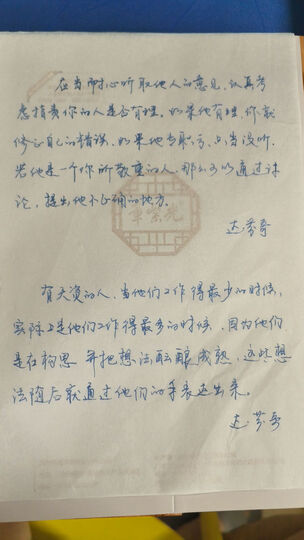 应当耐心听取他人的意见,认真考
虑指责你的人是否有理。如果他有理,你就
修正自己的错误,如果他有亏,只当没听。
若他是一个你所敬重的人,那么可以通过讨
论,提出他不正确的地方。
达·芬奇
有天资的人,当他们工作得最少的时候,
实际上是他们工作得最多的时候,因为他们
是在构思,并把想法酝酿成熟,这些想
法随后就通过他们的手表达出来。
达·芬奇